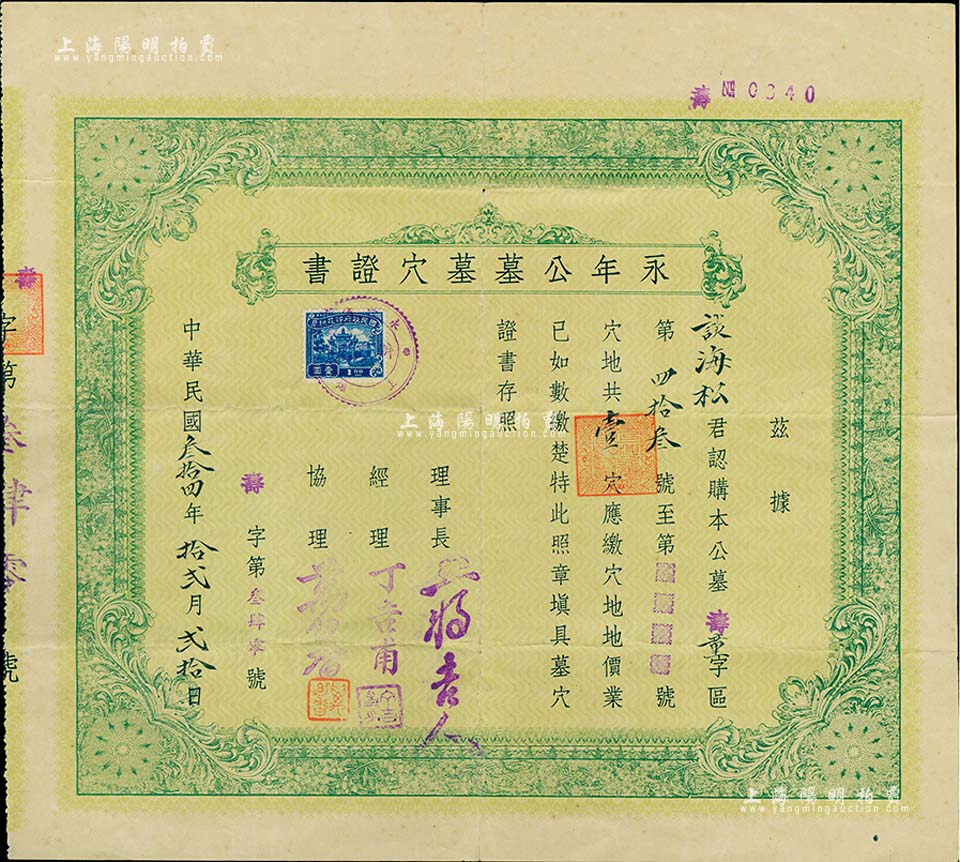 上海陽明拍賣
www.yangmingauction.com
壽 № 0340
永年公墓墓穴證書
茲據
談海松君認購本公墓壽字區
第四拾叁號至第號
穴地共壹穴應繳穴地地價業
已如數繳楚特此照章塡具墓穴
證書存照
壹圓 1.00 
理事長
經理 丁吉甫
協理
壽字第叁肆零號
中華民國叁拾四年拾弍月弍拾日
壽字第叁肆零號
上海陽明拍賣
www.yangmingauction.com
上海陽明拍賣
www.yangmingauction.com